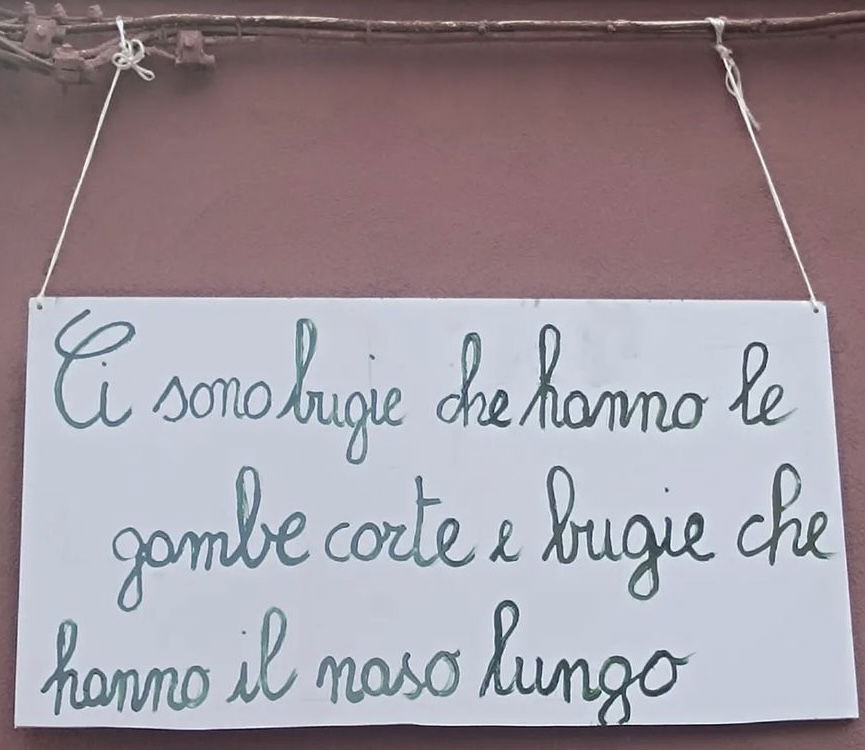 Ci sono bugie che hanno le
gambe corte e bugie che
hanno il naso lungo